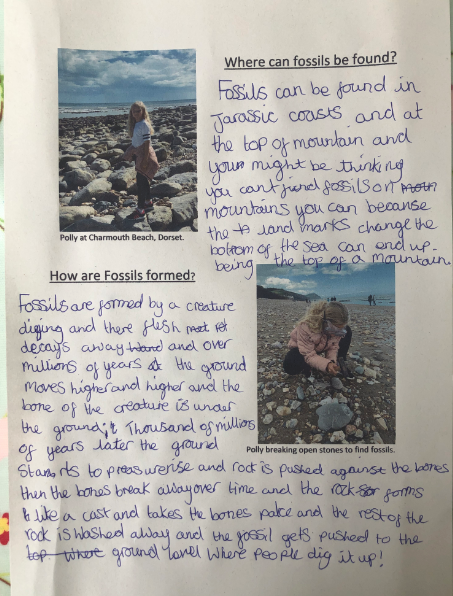 Where can fossils be found?
Fossils can be found in
Jarassic coasts and at
the top of mountain and
your might be thinking
you cant find fossils on
mountains you can because
the land marks change the
bottom of the sea can end up
being the top of a mountain.
Polly at Charmouth Beach, Dorset.
How are Fossils formed?
Fossils are formed by a creature
digking and there flesh
decays away and over
millions of years the ground
moves higher and higher and the
bone of the creature is under
the ground. Thousand of millions
of years later the ground
Polly breaking open stones to find fossils.
starts to pressurerise and rock is pushed against the bones
then the bones break away over time and the rock forms
like a cast and takes the bones palce and the rest of the
rock is washed away and the fossil gets pushed to the
top. Where ground level where people dig it up!